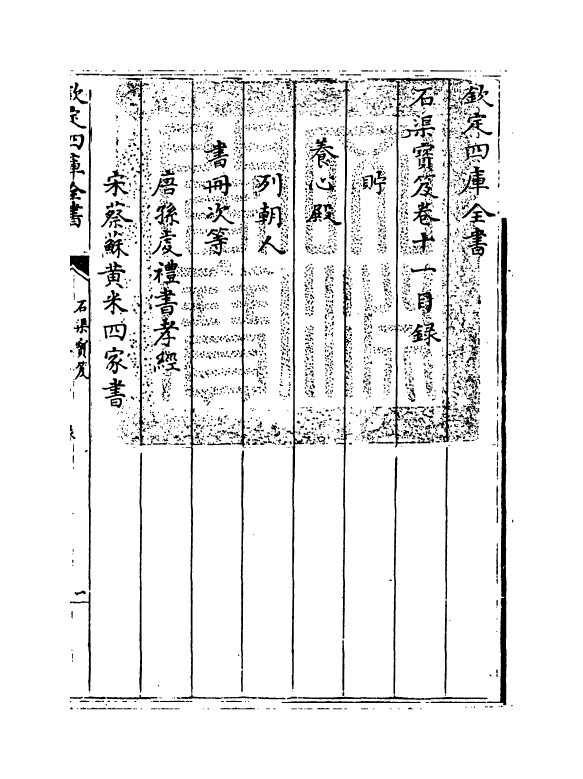 欽定四庫全書
石渠寶笈卷十一目録
貯
養心殿
列朝人
書冊次等
唐孫虔禮書孝經
宋蔡蘇黃米四家書
欽定四庫全書
石渠寶笈